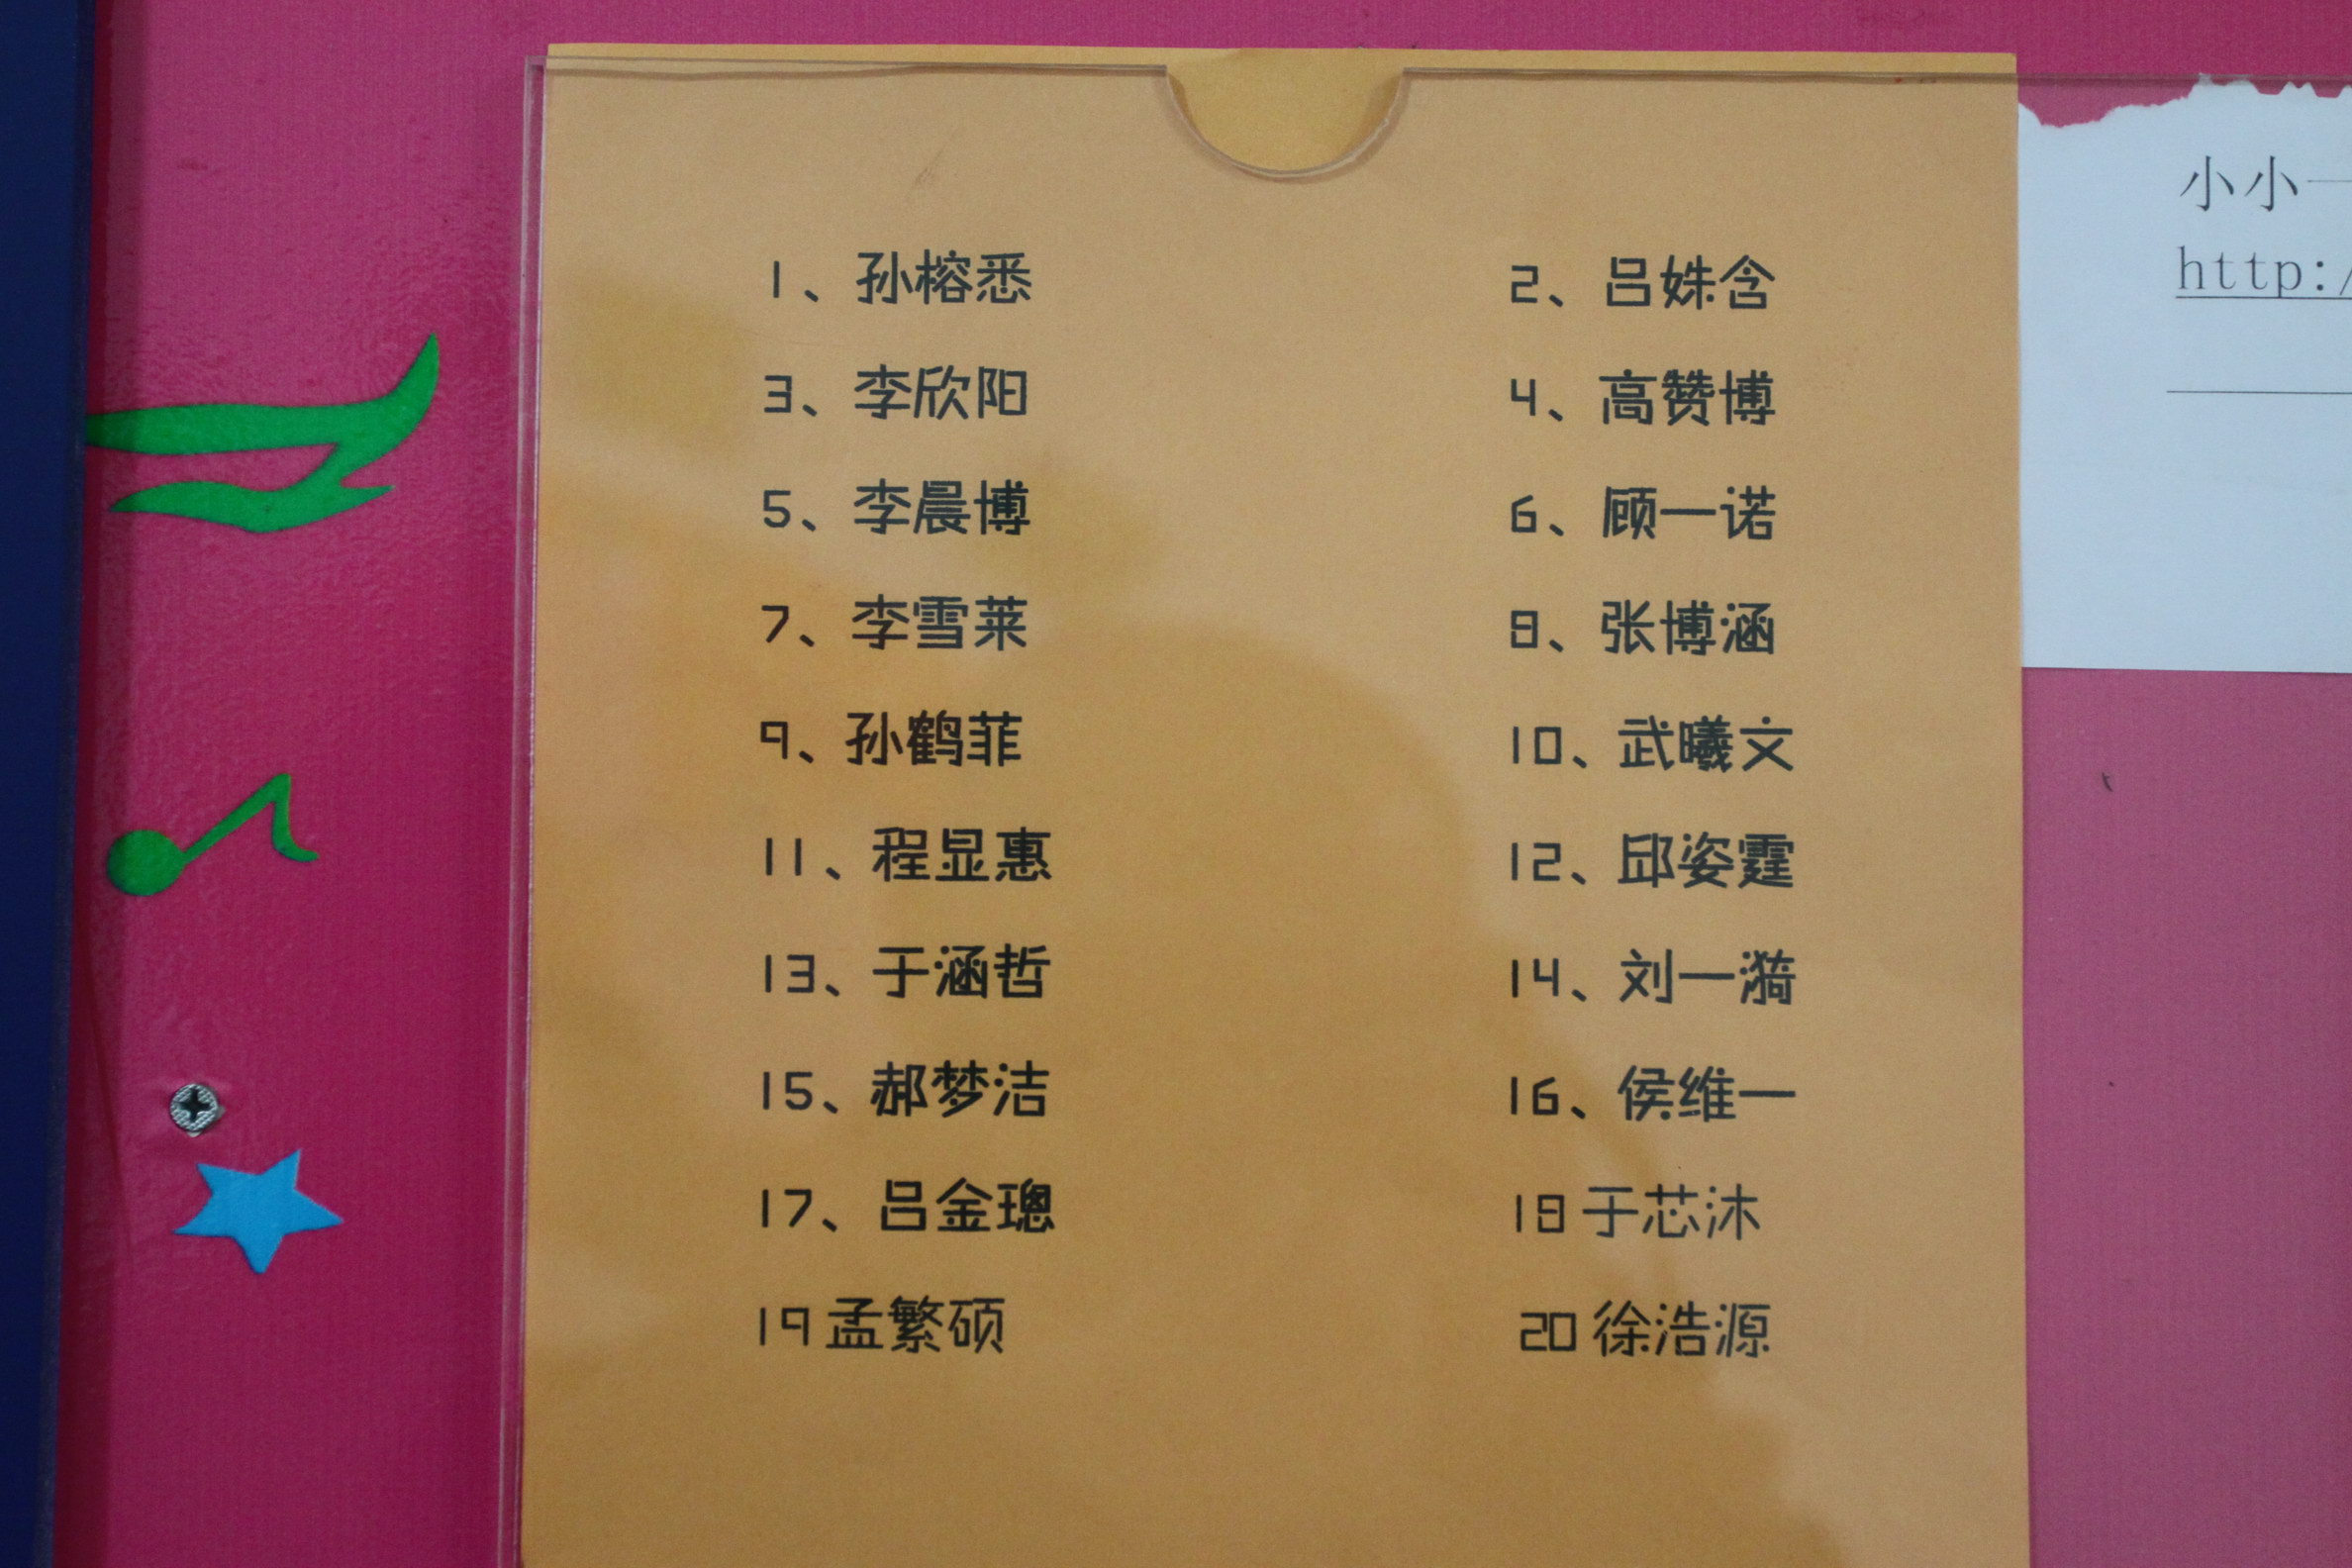 1、孙榕悉
2、吕姝含
3、李欣阳
4、高赞博
5、李晨博
6、顾一诺
7、李雪莱
8、张博涵
9、孙鹤菲
10、武曦文
11、程显惠
12、邱姿霆
13、于涵哲
14、刘一漪
15、郝梦洁
16、侯维一
17、吕金璁
18于芯沐
19孟繁硕
20徐浩源
小小一
http:/